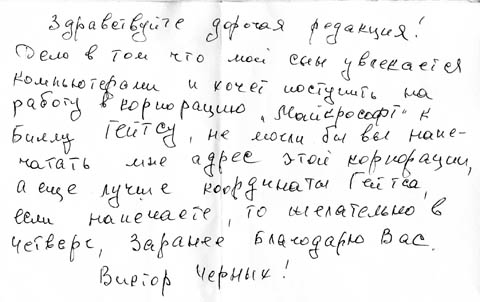 Здравствуйте дорогая редакция!
Дело в том что мой сын увлекается
компьютерами и хочет поступить на
работу в корпорацию „Майкрософт" к
Биллу Гейтсу, не могли бы вы напе-
чатать мне адрес этой корпорации,
а еще лучше координаты Гейтса,
если напечаете, то желательно в
четверг, Заранее благодарю Вас.
Виктор Черных!